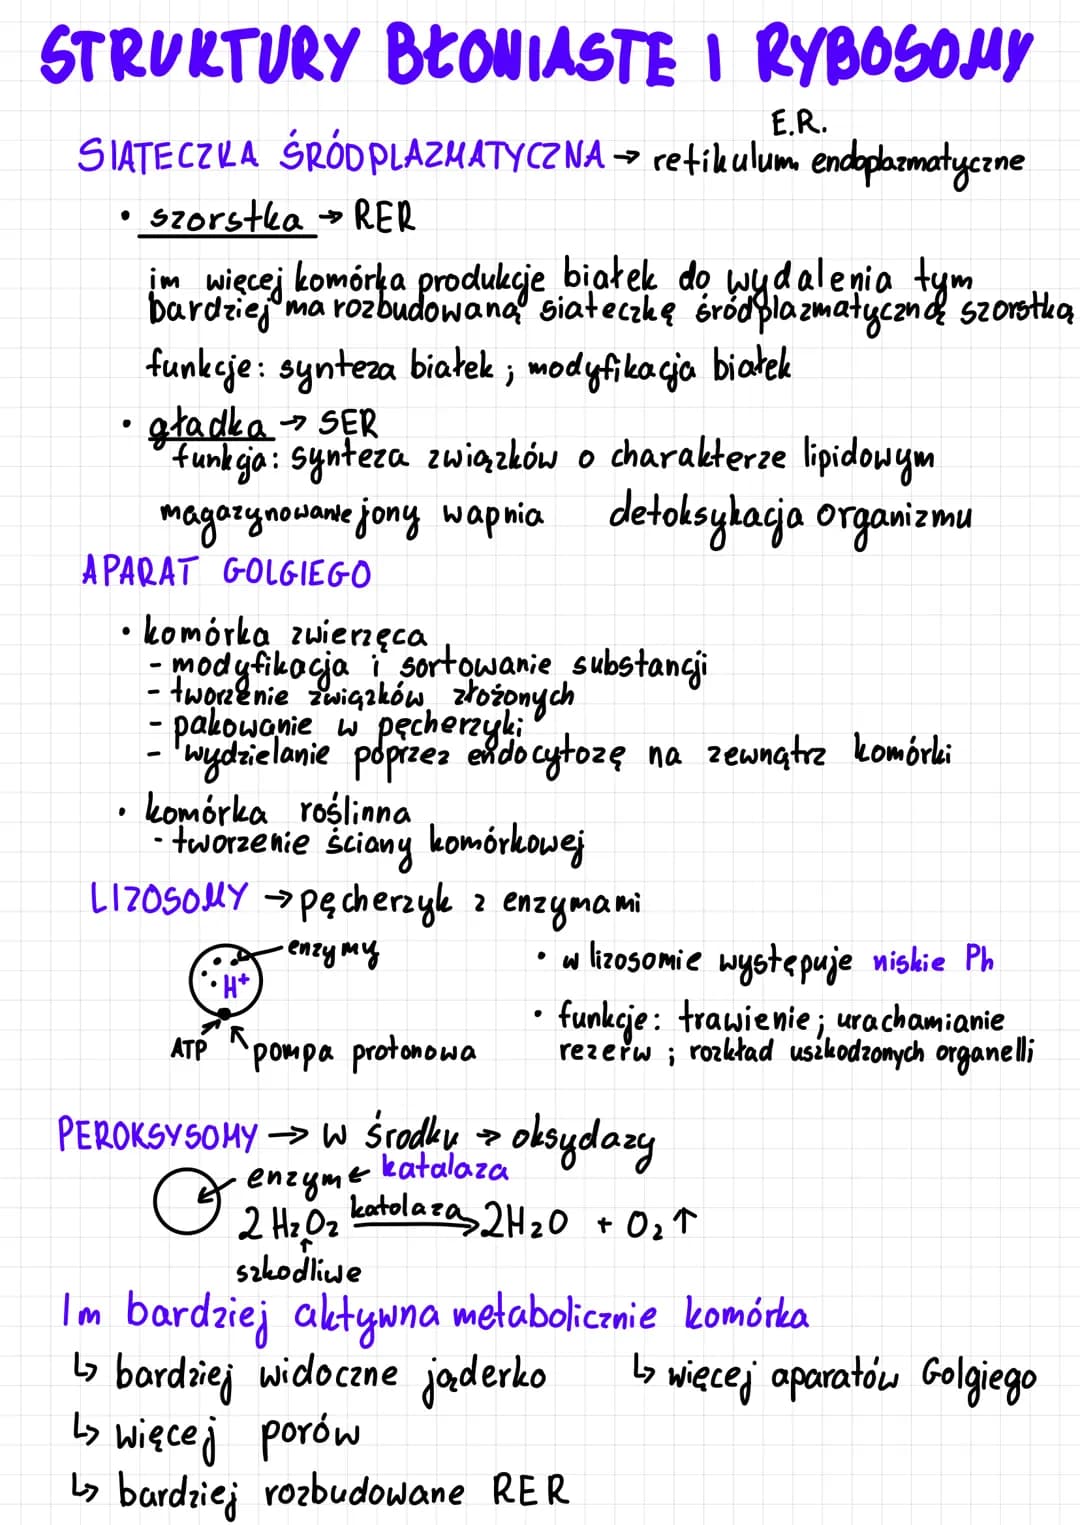 STRUKTURY BŁONIASTE I RYBOSOMY
E.R.
SIATECZKA ŚRÓDPLAZMATYCZNA → retikulum endoplazmatyczne
• szorstka → RER
im więcej komórka produkcje białek do wydalenia tym
bardziej ma rozbudowaną siateczkę śródplazmatyczną szorstką
funkcje: synteza białek ; modyfikacja białek
• gładka → SER
funkcja: synteza związków o charakterze lipidowym
magazynowanie jony wapnia detoksykacja organizmu
APARAT GOLGIEGO
• komórka zwierzęca
- modyfikacja i sortowanie substancji
- tworzenie związków złożonych
- pakowanie w pęcherzyki
- wydzielanie poprzez endocytozę na zewnątrz komórki
• komórka roślinna
- tworzenie ściany komórkowej
LIZOSOMY → pęcherzyk z enzymami
enzymy
H+
ATP
pompa protonowa
• w lizosomie występuje niskie Ph
• funkcje: trawienie ; urachamianie
rezerw ; rozkład uszkodzonych organelli
PEROKSYSOMY → w środku → oksydazy
enzym ← katalaza
2 H₂O₂ katalaza→ 2H₂O + O₂↑
↑
szkodliwe
Im bardziej aktywna metabolicznie komórka
↳ bardziej widoczne jąderko ↳ więcej aparatów Golgiego
↳ więcej porów
↳ bardziej rozbudowane RER